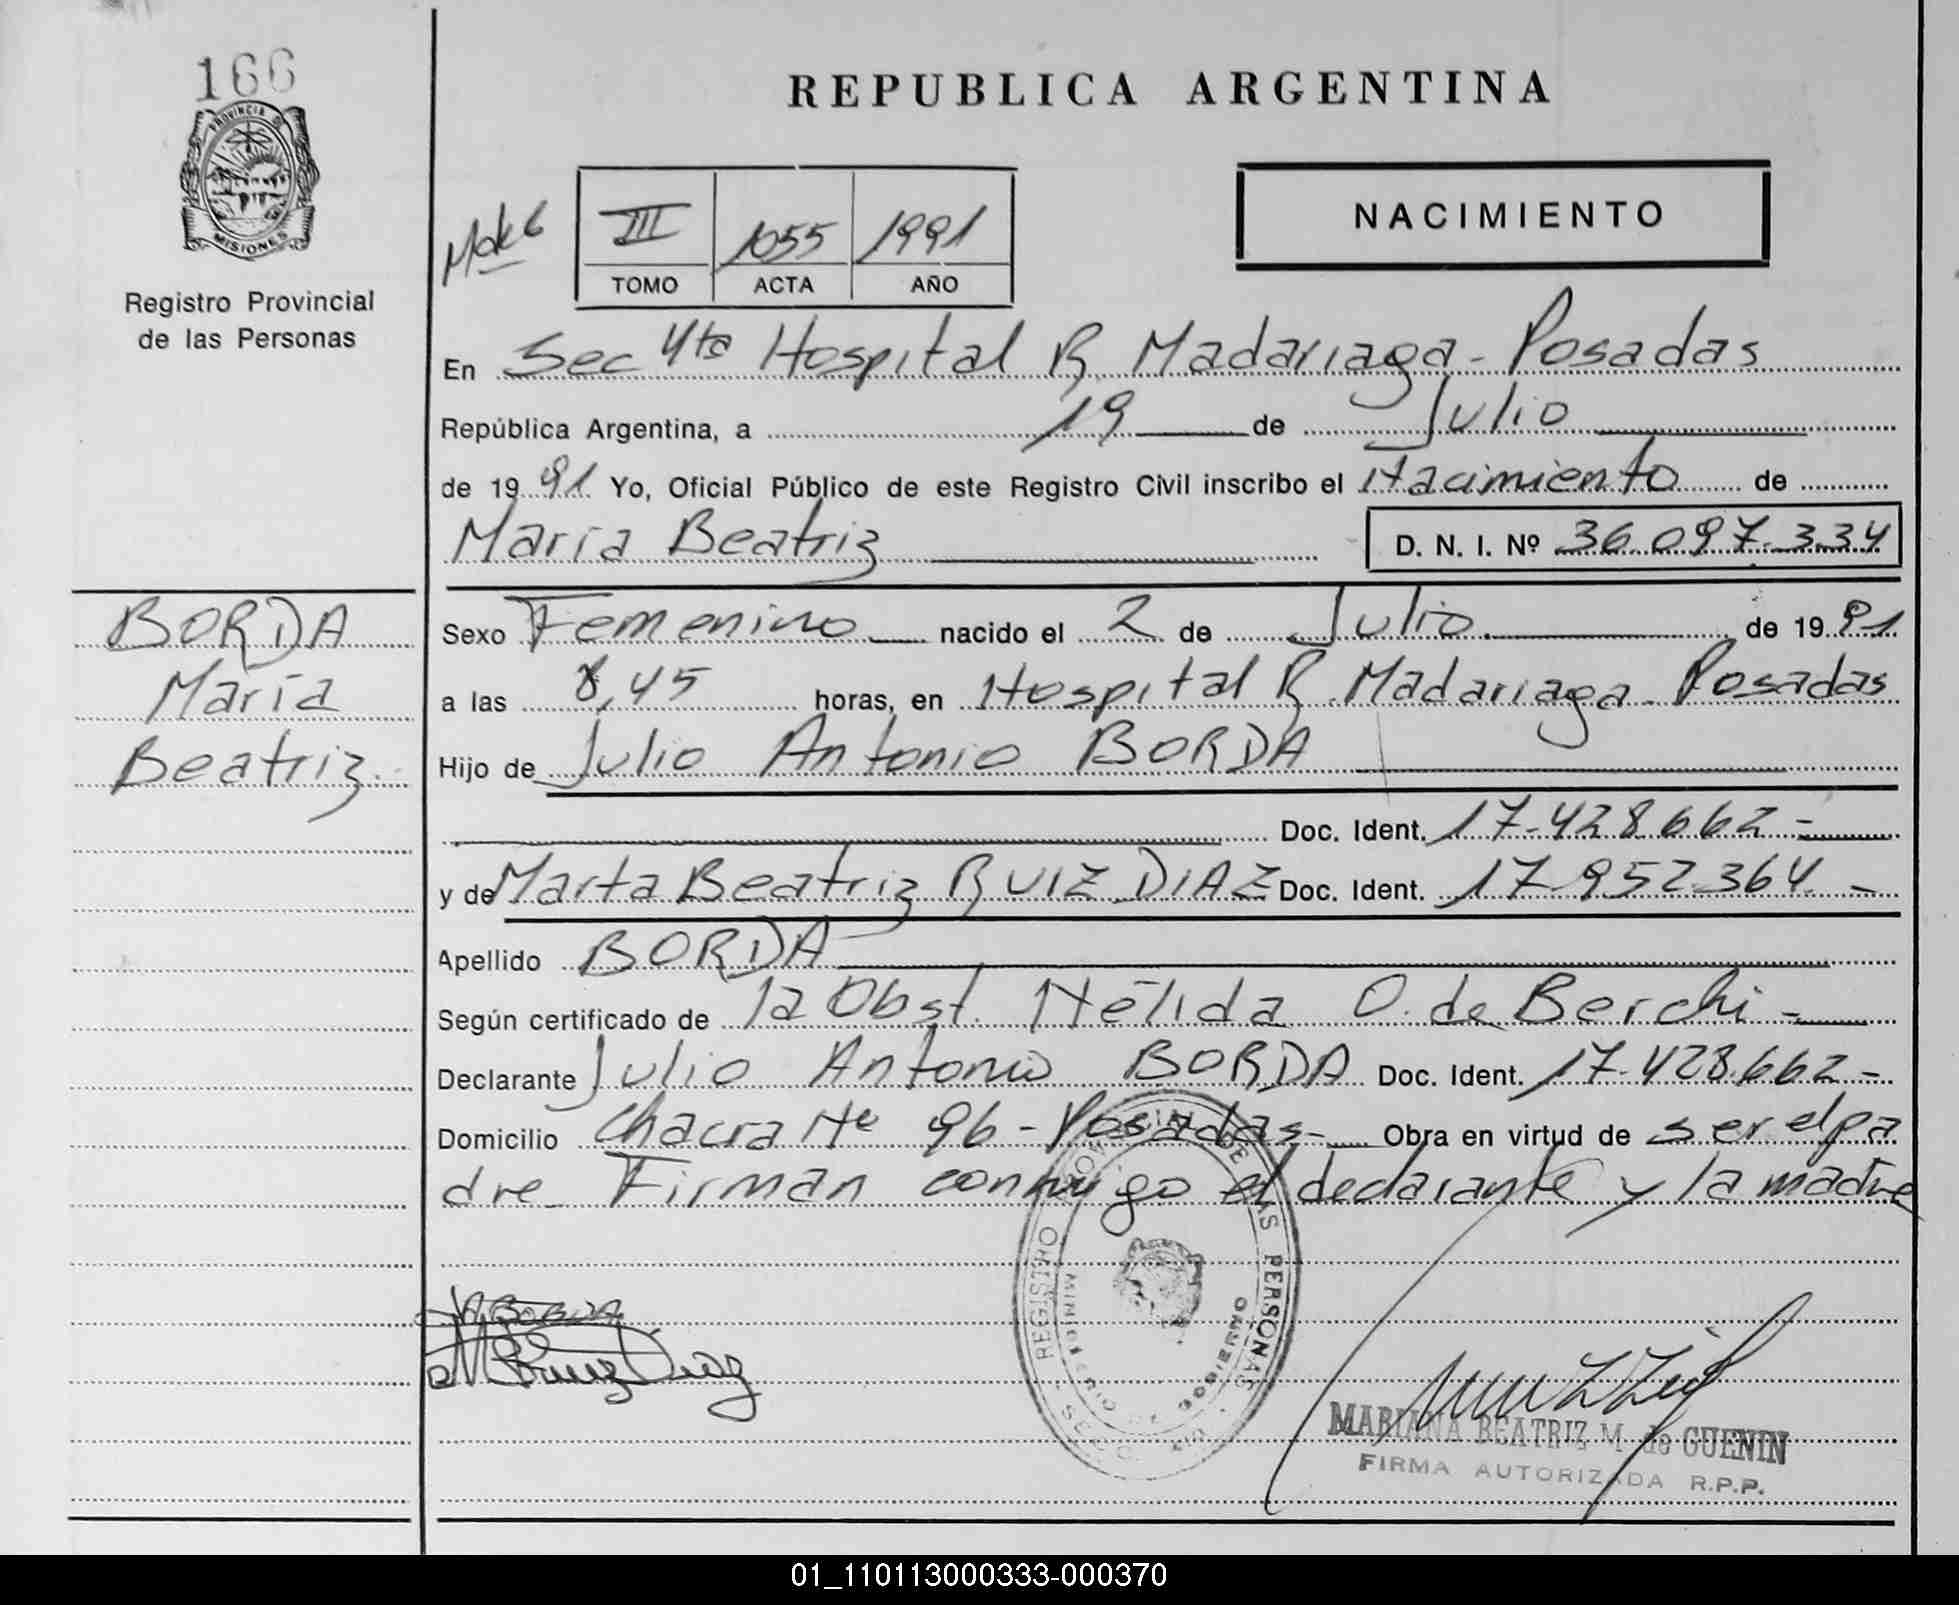 166
PROVINCIA D
MISIONES
Registro Provincial
de las Personas
REPUBLICA ARGENTINA
III 1055 1991
TOMO ACTA AÑO
NACIMIENTO
En Sec 4ta Hospital R Madariaga - Posadas
República Argentina, a 19 de Julio
de 1991 Yo, Oficial Público de este Registro Civil inscribo el Nacimiento de
María Beatriz D. N. I. Nº 36.097.334
BORDA
María
Beatriz
Sexo Femenino nacido el 2 de Julio de 1991
a las 8,45 horas, en Hospital R Madariaga - Posadas
Hijo de Julio Antonio BORDA
Doc. Ident. 17.428.662 -
y de Marta Beatriz RUIZ DIAZ Doc. Ident. 17.952.364 -
Apellido BORDA
Según certificado de la Obst. Nélida O. de Berchi -
Declarante Julio Antonio BORDA Doc. Ident. 17.428.662 -
Domicilio Chacra Nº 96 - Posadas - Obra en virtud de ser el pa
dre Firman conmigo el declarante y la madre
REGISTRO PROVINCIAL DE LAS PERSONAS
MINISTERIO DE GOBIERNO
M B Ruiz Diaz
MARIANA BEATRIZ M. de GUENIN
FIRMA AUTORIZADA R.P.P.
01_110113000333-000370